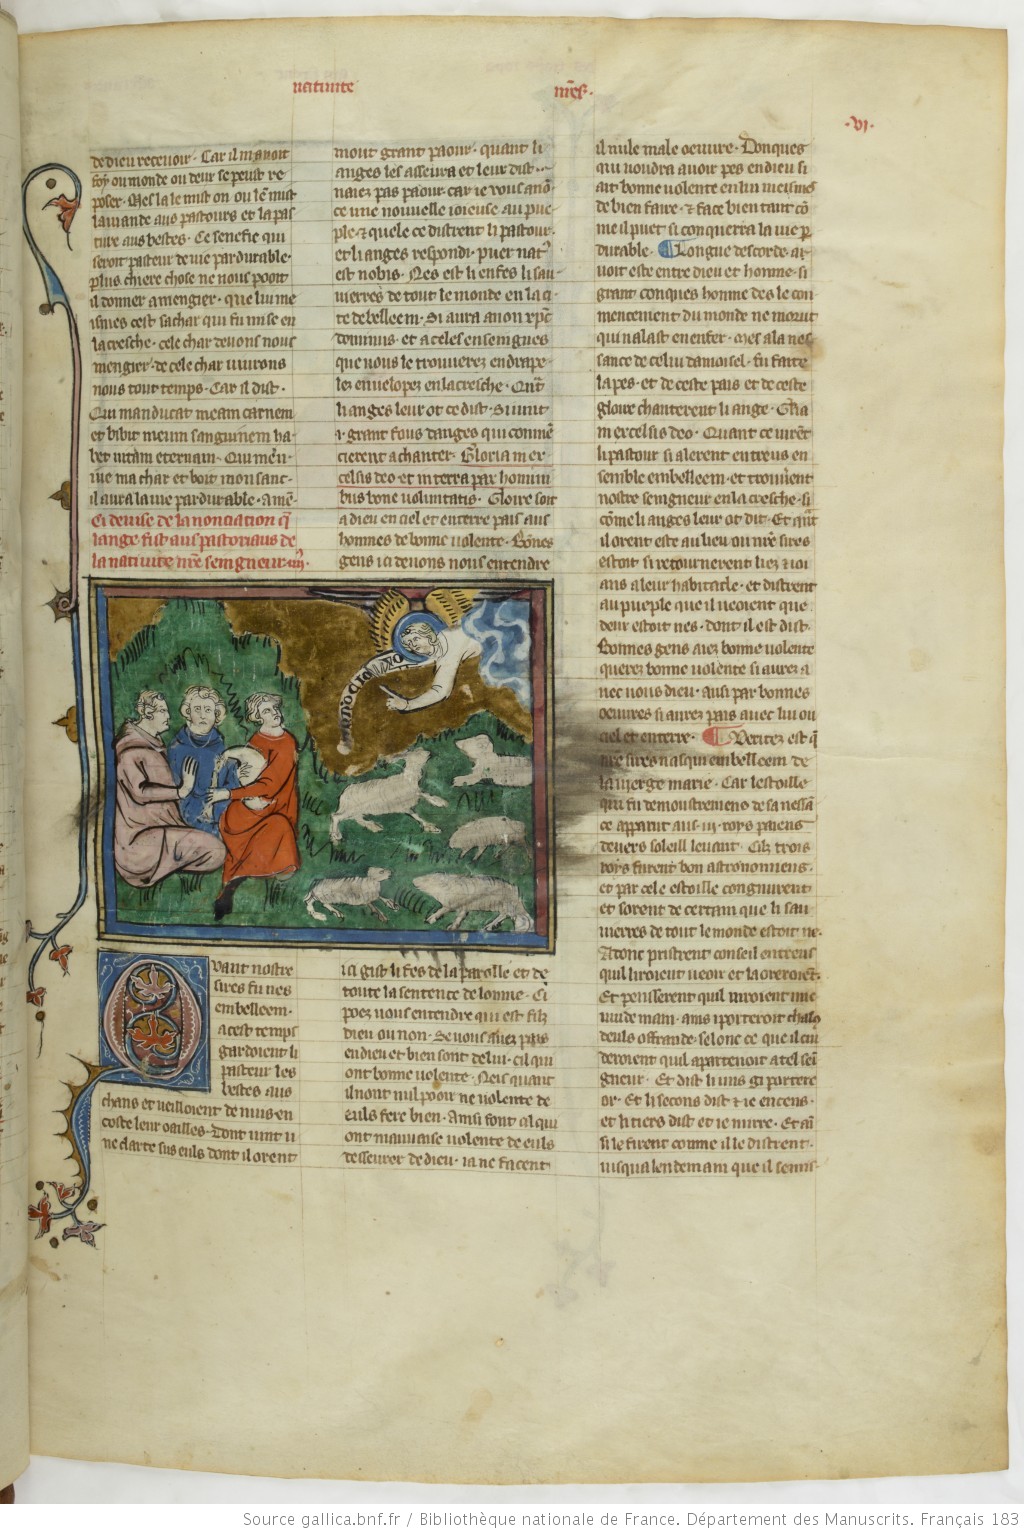 natiuite
nr̃e s̃.
.vi.
de dieu receuoir. Car il nauoit
foy ou monde ou deux se peust re
poser. Mes la le mist on ou lē mist
la uiande aus pastours et la pas
ture aus bestes. Ce senefie qui
seroit pasteur de uie pardurable.
plus chiere chose ne nous pooit
il donner a mengier. que lui me
ismes cest sa char qui fu mise en
la cresche. cele char deuons nous
mengier. de cele char uiurons
nous tout temps. Car il dist.
Qui manducat meam carnem
et bibit meum sanguinem ha
bet uitam eternam. Qui men
iue ma char et boit mon sanc.
il aura la uie pardurable. amē.
Ci deuise de la nonciation q̄
lange fist aus pastoriaus de
la natiuite nr̃e seingneur. iiij.
Quant nostre
sires fu nes
em belleem.
a cest temps
gardoient li
pasteur les
bestes aus
chans et ueilloient de nuis en
coste leur oailles. Dont uint u
ne clarte sus euls dont il orent
mout grant paour. quant li
anges les asseura et leur dist.
naiez pas paour. car ie uous anō
ce une nouuelle ioieuse au pue
ple. et quele ce distrent li pastour.
et li anges respondi. puer nat᷒
est nobis. Nes est li enfes li sau
uierres de tout le monde en la ci
te de belleem. Si aura a non xp̄c
dominus. et a celes enseingnes
que uous le trouuerez en drape
lez enuelopez en la cresche. Qn̄t
li anges leur ot ce dist. Si uint
.i. grant fous danges qui commē
cierent a chanter. Gloria in ex
celsis deo. et in terra pax homini
bus bone uoluntatis. Gloire soit
a dieu en ciel et en terre pais aus
hommes de bonne uolente. Bōnes
gens ici deuons nous entendre
ici gist li fes de la parolle et de
toute la sentence de lomme. Ci
poez uous entendre qui est filz
dieu ou non. Se uous auez pais
en dieu et bien sont de lui. cil qui
ont bonne uolente. Neis quant
il nont nul pooir ne uolente de
euls fere bien. Ainsi sont cil qui
ont mauuaise uolente de euls
desseurer de dieu. ia ne facent
il nule male oeuure. Donques
qui uoudra auoir pes en dieu si
ait bonne uolente en lui meismes
de bien faire. et face bien tant cō
me il puet si conquerra la uie p̱
durable. Longue descorde a
uoit este entre dieu et homme. si
grant conques homme des le con
mencement du monde ne morut
qui nalast en enfer. Mes a la nes
sance de celui damoisel. fu faite
la pes. et de ceste pais et de ceste
gloire chanterent li ange. Gl̃ia
in excelsis deo. Quant ce uirēt
li pastour si alerent entreus en
semble em belleem. et trouuerent
nostre seingneur en la cresche. si
cōme li anges leur ot dit. Et qn̄t
il orent este au lieu ou nr̃e sires
estoit si retournerent liez et ioi
ans a leur habitacle. et distrent
au pueple que il ueoient que
deux estoit nes. dont il est dist.
Bonnes gens aiez bonne uolente
querez bonne uolente si aurez a
uec uous dieu. ausi par bonnes
oeuures si aurez pais auec lui ou
ciel et en terre. Veritez est q̄
nr̃e sires nasqui em belleem de
la uierge marie. Car lestoille
qui fu demoustremens de sa nessā
ce apparut aus .iii. roys paiens
deuers soleill leuant. Cilz trois
roys furent bon astronomiens.
et par cele estoille congnurent
et sorent de certain que li sau
uierres de tout le monde estoit ne.
Adonc pristrent conseil entreus
quil liroient ueoir et laoreront.
Et penserent quil iuroient me
uu de main. ains i porteroit chas
deuls offrande. selonc ce que il cui
deroient quil apartenoit a tel sein
gneur. Et dist li uns gi porterē
or. Et li secons dist et ie encens.
et li tiers dist et ie mirre. Et ain
si le firent comme il le distrent.
iusqua lendemain que il semis.
Source gallica.bnf.fr / Bibliothèque nationale de France. Département des Manuscrits. Français 183